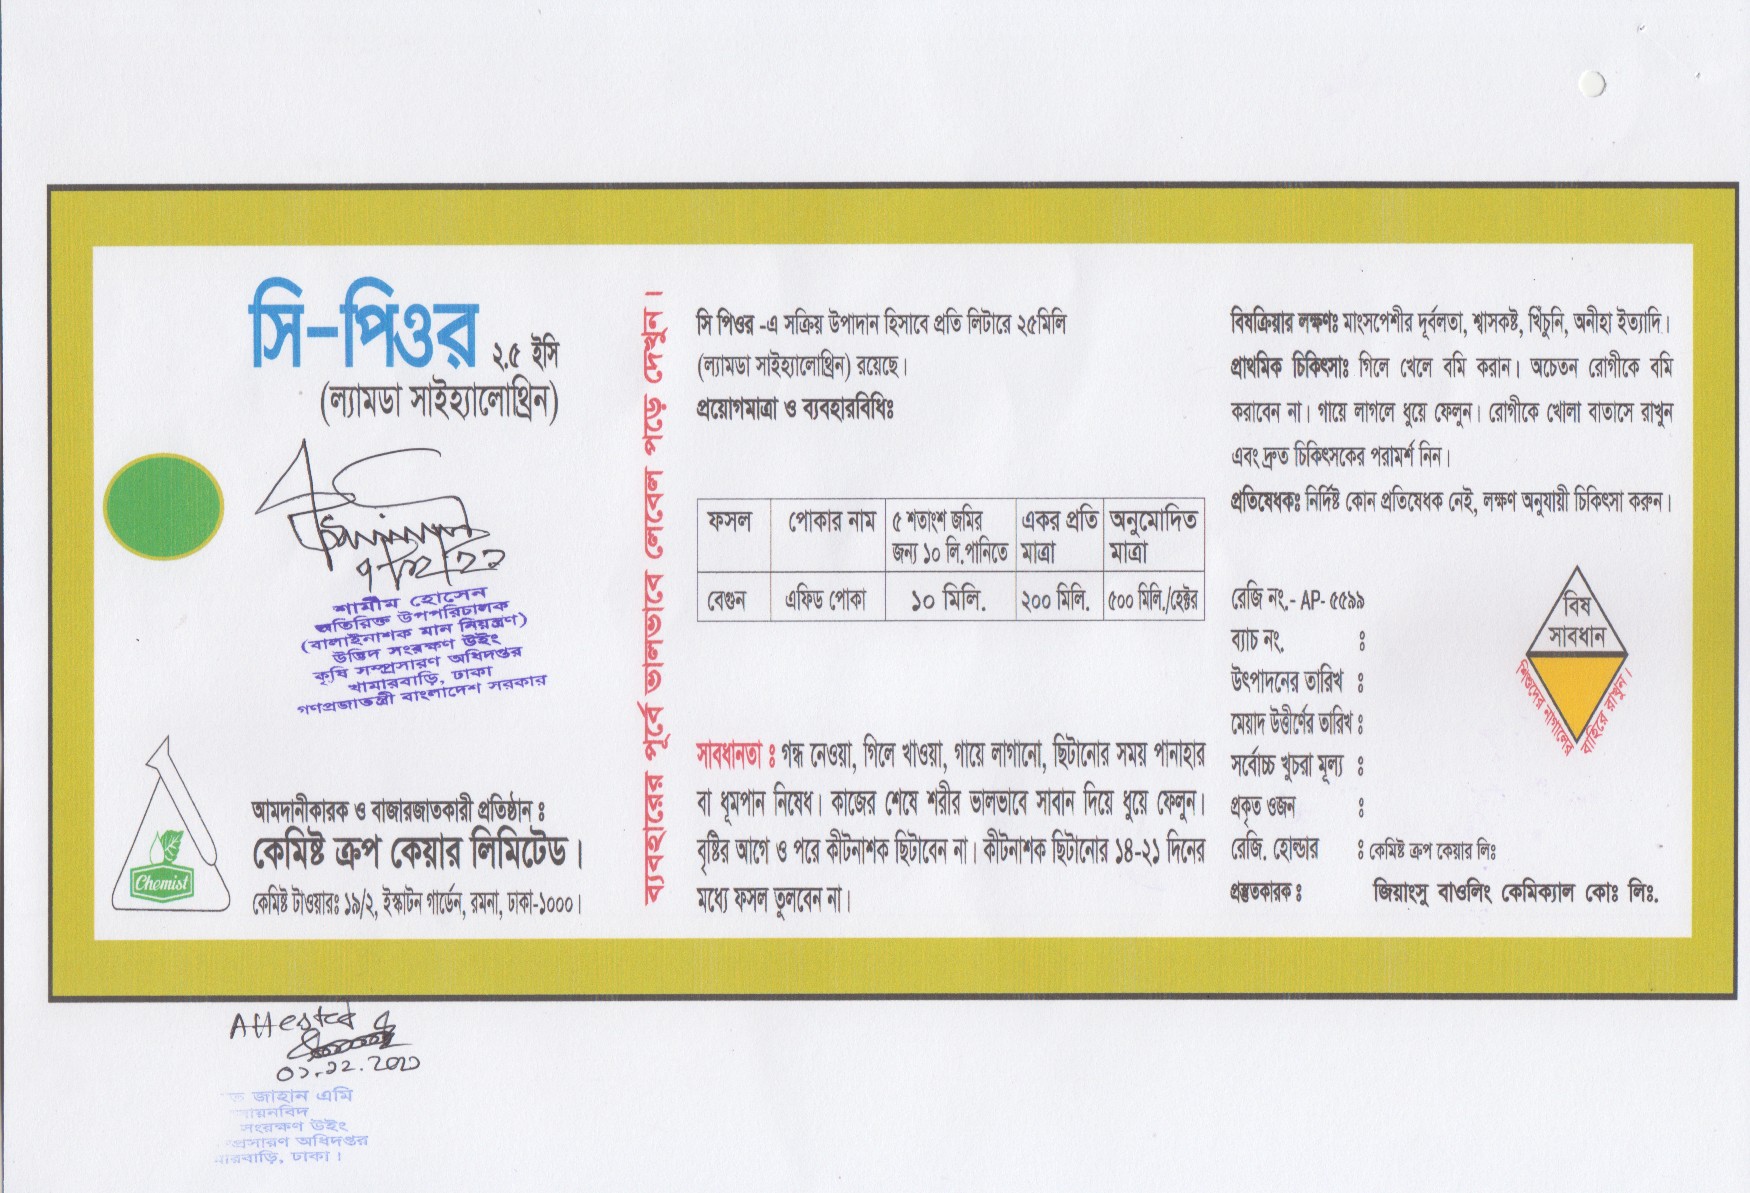 সি-পিওর ২.৫ ইসি
(ল্যামডা সাইহ্যালোথ্রিন)
৭/১২/২২
শামীম হোসেন
অতিরিক্ত উপপরিচালক
(বালাইনাশক মান নিয়ন্ত্রণ)
উদ্ভিদ সংরক্ষণ উইং
কৃষি সম্প্রসারণ অধিদপ্তর
খামারবাড়ি, ঢাকা
গণপ্রজাতন্ত্রী বাংলাদেশ সরকার
Chemist
আমদানীকারক ও বাজারজাতকারী প্রতিষ্ঠান ঃ
কেমিষ্ট ক্রপ কেয়ার লিমিটেড।
কেমিষ্ট টাওয়ারঃ ১৯/২, ইস্কাটন গার্ডেন, রমনা, ঢাকা-১০০০।
ব্যবহারের পূর্বে ভালভাবে লেবেল পড়ে দেখুন।
সি পিওর -এ সক্রিয় উপাদান হিসাবে প্রতি লিটারে ২৫মিলি
(ল্যামডা সাইহ্যালোথ্রিন) রয়েছে।
প্রয়োগমাত্রা ও ব্যবহারবিধিঃ
ফসল পোকার নাম ৫ শতাংশ জমির একর প্রতি অনুমোদিত
জন্য ১০ লি.পানিতে মাত্রা মাত্রা
বেগুন এফিড পোকা ১০ মিলি. ২০০ মিলি. ৫০০ মিলি./হেক্টর
সাবধানতা ঃ গন্ধ নেওয়া, গিলে খাওয়া, গায়ে লাগানো, ছিটানোর সময় পানাহার
বা ধূমপান নিষেধ। কাজের শেষে শরীর ভালভাবে সাবান দিয়ে ধুয়ে ফেলুন।
বৃষ্টির আগে ও পরে কীটনাশক ছিটাবেন না। কীটনাশক ছিটানোর ১৪-২১ দিনের
মধ্যে ফসল তুলবেন না।
বিষক্রিয়ার লক্ষণঃ মাংসপেশীর দূর্বলতা, শ্বাসকষ্ট, খিঁচুনি, অনীহা ইত্যাদি।
প্রাথমিক চিকিৎসাঃ গিলে খেলে বমি করান। অচেতন রোগীকে বমি
করাবেন না। গায়ে লাগলে ধুয়ে ফেলুন। রোগীকে খোলা বাতাসে রাখুন
এবং দ্রুত চিকিৎসকের পরামর্শ নিন।
প্রতিষেধকঃ নির্দিষ্ট কোন প্রতিষেধক নেই, লক্ষণ অনুযায়ী চিকিৎসা করুন।
রেজি নং.- AP- ৫৫৯৯
ব্যাচ নং. ঃ
উৎপাদনের তারিখ ঃ
মেয়াদ উত্তীর্ণের তারিখ ঃ
সর্বোচ্চ খুচরা মূল্য ঃ
প্রকৃত ওজন ঃ
রেজি. হোল্ডার ঃ কেমিষ্ট ক্রপ কেয়ার লিঃ
প্রস্তুতকারক ঃ জিয়াংসু বাওলিং কেমিক্যাল কোঃ লিঃ.
বিষ
সাবধান
শিশুদের নাগালের
বাহিরে রাখুন।
Attested
জাহান এমি
সংরক্ষণ উইং
অধিদপ্তর
ঢাকা।